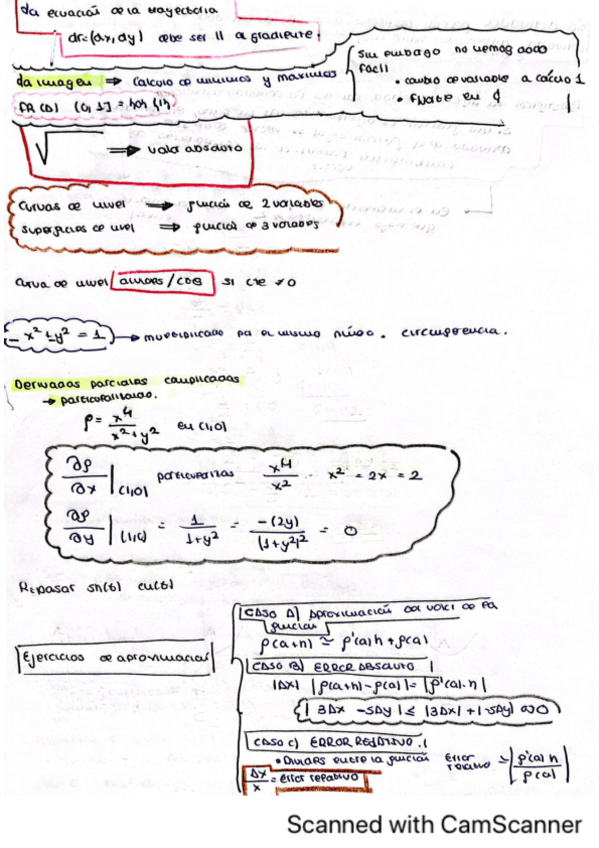 da ecuación de la trayectoria
dr=(dx,dy) debe ser || a gradiente
da imagen ⇒ calculo de minimos y maximos
Sin embargo no hemos dado
facil
• cambio de variable a calculo 1
• fijate en
√ ⇒ valor absoluto
Curvas de nivel → función de 2 variables
Superficies de nivel ⇒ función de 3 variables
Curva de nivel si cte ≠0
x²+y² = 1 → multiplicado por el mismo número. circunferencia.
Derivadas parciales complicadas
→ particularizado.
f= x⁴/(x²+y²) en (1,0)
∂f/∂x |(1,0) particularizas x⁴/x² x² = 2x = 2
∂f/∂y |(1,0) = 1/(1+y²) = -(2y)/(1+y²)² = 0
Repasar sh(t) ch(t)
Ejercicios de aproximación
CASO A) Aproximación del valor de la
función
f(a+h) ≃ f'(a)h + f(a)
CASO B) ERROR ABSOLUTO
|Δx| |f(a+h)-f(a)|= |f'(a)·h|
| 3Δx -5Δy | ≤ |3Δx| + |-5Δy|
CASO C) ERROR RELATIVO
• Divides entre la función error relativo |f'(a)h / f(a)|
Δx/x = error relativo
Scanned with CamScanner